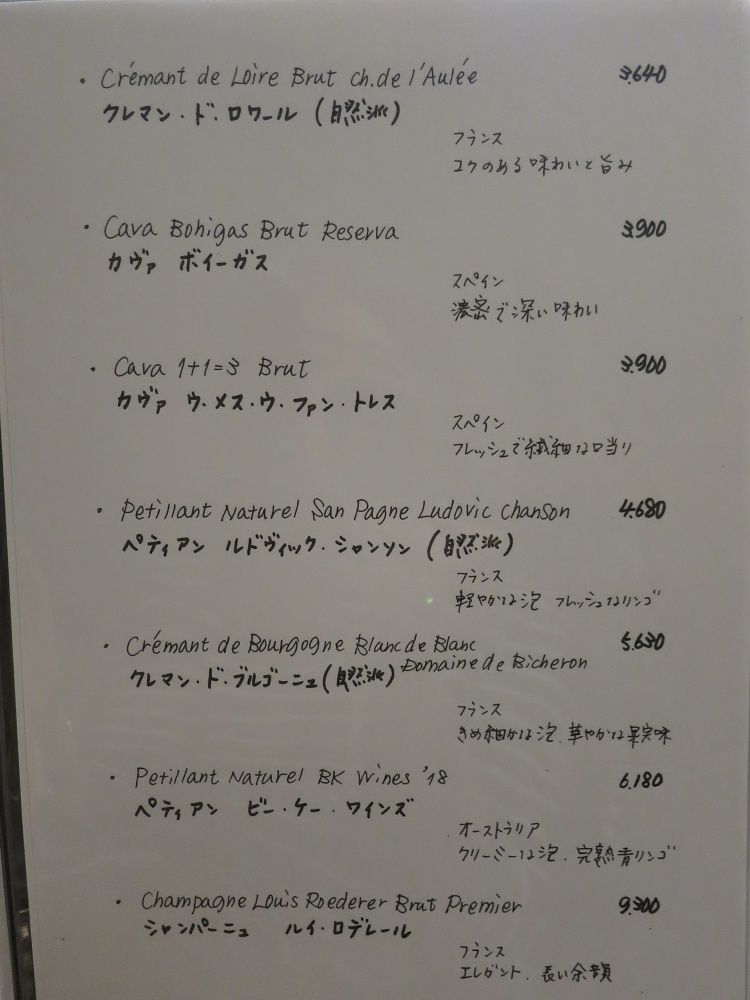 ・ Crémant de Loire Brut ch.de l'Aulée 3.640
クレマン・ド・ロワール (自然派)
フランス
コクのある味わいと旨み
・ Cava Bohigas Brut Reserva 3.900
カヴァ ボイーガス
スペイン
濃密で深い味わい
・ Cava 1+1=3 Brut 3.900
カヴァ ウ・メス・ウ・ファン・トレス
スペイン
フレッシュで繊細な口当り
・ Petillant Naturel San Pagne Ludovic Chanson 4.680
ペティアン ルドヴィック・シャンソン (自然派)
フランス
軽やかな泡 フレッシュなリンゴ
・ Crémant de Bourgogne Blanc de Blanc 5.630
Domaine de Bicheron
クレマン・ド・ブルゴーニュ(自然派)
フランス
きめ細かな泡、華やかな果実味
・ Petillant Naturel BK Wines '18 6.180
ペティアン ビー・ケー・ワインズ
オーストラリア
クリーミーな泡、完熟青リンゴ
・ Champagne Louis Roederer Brut Premier 9.300
シャンパーニュ ルイ・ロデレール
フランス
エレガント、長い余韻